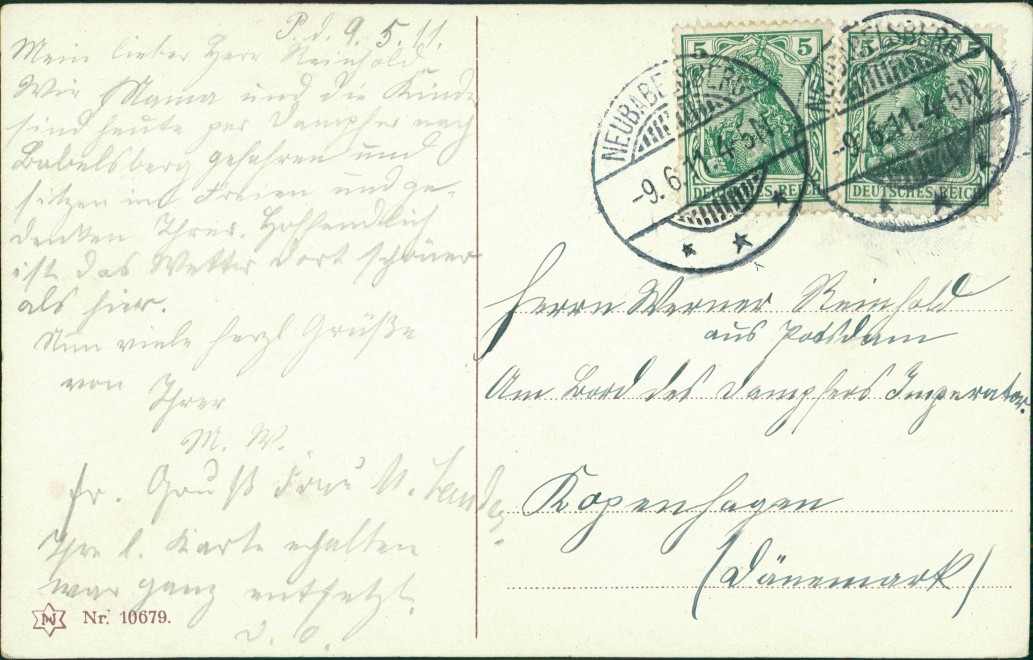 P. d. 9. 5. 11.
Mein lieber Herr Reinhold
Wir Mama und die Kinder
sind heute per Dampfer nach
Babelsberg gefahren und
sitzen im Freien und ge-
denken Ihrer. Hoffendlich
ist das Wetter dort schöner
als hier.
Nun viele herzl Grüße
von
Ihrer
M. W.
fr. Gruß
Ihre l. Karte erhalten
war ganz entsetzt.
D. O.
Nr. 10679.
5 5
DEUTSCHES REICH
5 5
DEUTSCHES REICH
NEUBABELSBERG
-9.6.11.4-5N
NEUBABELSBERG
-9.6.11.4-5N
Herrn Werner Reinhold
aus Potsdam
Am Bord des Dampfers Imperator.
Kopenhagen
(Dänemark)